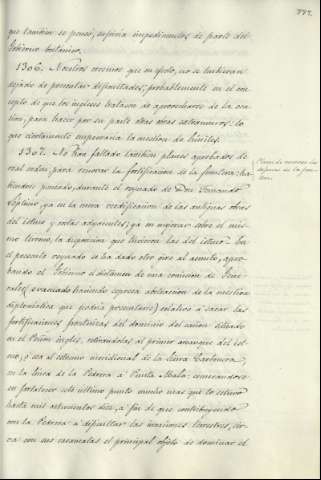 337.
que tambien se pensó, sufriria impedimentos de parte del
Gobierno británico.
1306. Nosotros creemos que en efecto, no se hubieran
dejado de presentar dificultades; probablemente en el con
cepto de que los ingleses tratasen de aprovecharse de la oca
sion, para hacer por su parte otras obras extramuros: lo
que ciertamente empeoraria la cuestion de límites.
1307. No han faltado tambien planes aprobados de
real orden, para renovar la fortificacion de la frontera: ha
biéndose pensado, durante el reynado de Don Fernando
Septimo, ya en la mera reedificacion de las antiguas obras
del istmo y costas adyacentes; ya en mejorar sobre el mis
mo terreno, la disposicion que tuvieron las del istmo. En
el presente reynado se ha dado otro giro al asunto, apro
bando el Gobierno el dictamen de una comision de Gene
rales (evacuado haciendo expresa abstraccion de la cuestion
diplomática que podria presentarse) relativo á sacar las
fortificaciones fronterizas del dominio del cañon situado
en el Peñon inglés, retirándolas al primer arranque del ist
mo, ó sea al extremo meridional de la Sierra Carbonera,
en la linea de la Pedrera á Punta Mala: conviniéndose
en fortalecer este ultimo punto mucho mas que lo estuvo
hasta mil ochocientos diez, á fin de que contribuyendo
con la Pedrera á dificultar las invasiones terrestres, lle
va con sus cazamatas el principal objeto de dominar el
Planes de renovar las
defensas de la fron
tera.